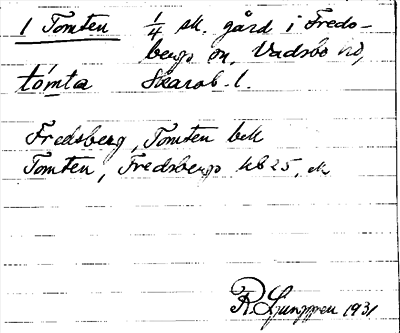 1 Tomten 1/4 sk. gård i Freds-
bergs sn, Vadsbo hd,
tómta Skarab. l.
Fredsberg, Tomten bell
Tomten, Fredsbergs kb 25, ek
R. Ljunggren 1931